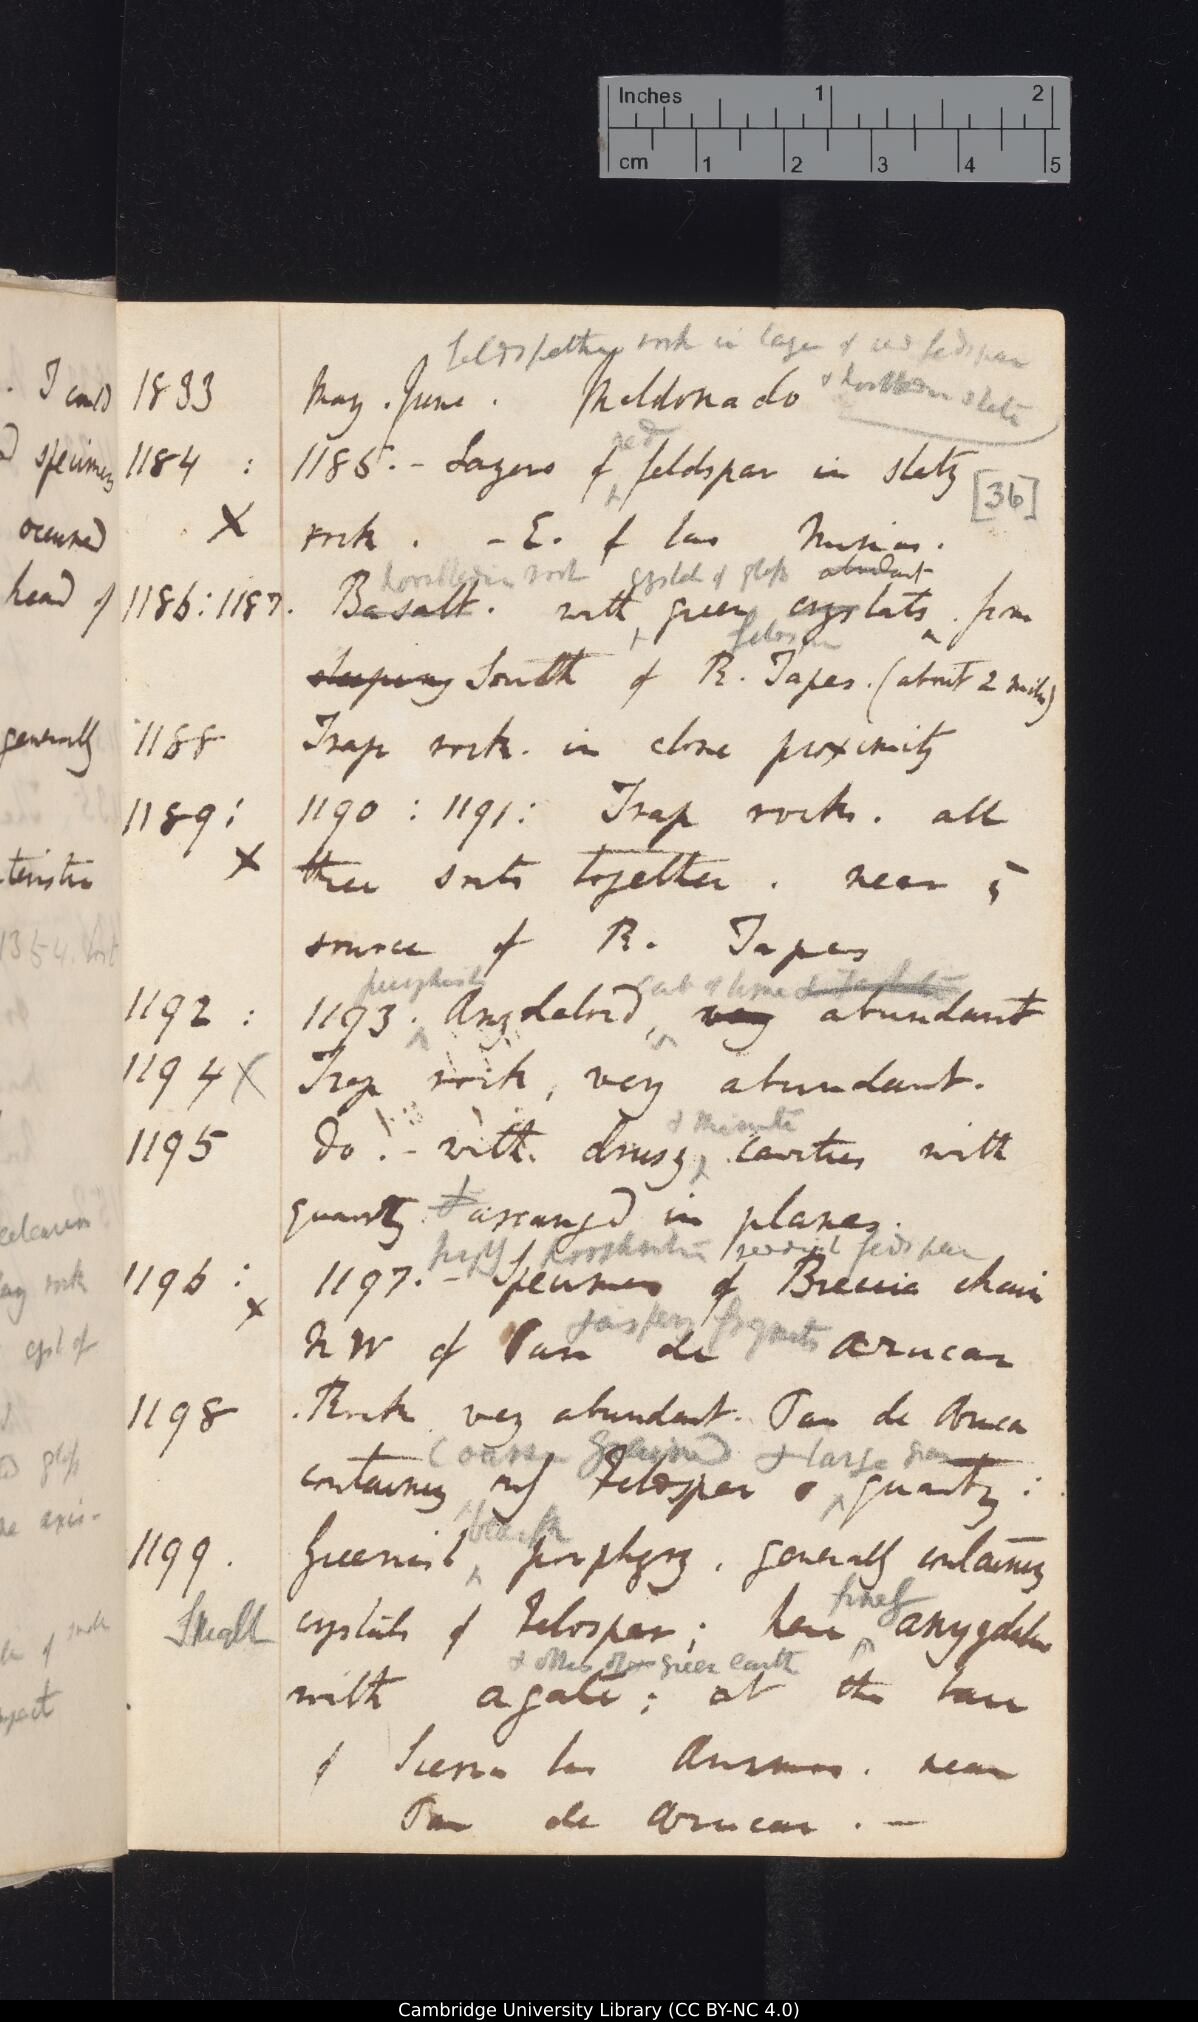 Inches 1 2
cm 1 2 3 4 5
feldspathic rock in layer of red feldspar
& hornblendic slate
1833 May. June. Maldonado
red
1184 : 1185. - Layers of ^ feldspar in slaty
[36]
X rock. - E. of las Minas.
hornblendic rock crystals of gloss abundant
1186 : 1187. Basalt. with ^ green crystals ^ from
feldspar
sleeping South of R. Tapes. (about 2 miles)
1188 Trap rock. in close proximity
1189 : 1190 : 1191 : Trap rocks. all
X three sorts together. near
source of R. Tapes
carb of lime &
1192 : 1193. ^ Amygdaloid, ^ very abundant
1194 X Trap rock, very abundant.
& minute
1195 Do. - with drusy ^ cavities with
quartz & arranged in planes.
feldspar
1196 : 1197. - Specimens of Breccia chain
& jaspery fragments
X NW of Pan de Azucar
1198 Rock very abundant. Pan de Azucar
Coarse grained & large
containing red Feldspar & ^ quartz :
black
1199. Greenish ^ porphyry. generally containing
finely
Small crystals of Feldspar; here ^ amygdaloid
& others green earth
with agate; at the base
of Sierra las Animas. near
Pan de Azucar. —
. I could
specimens
occurred
head of
generally
1354.
rock
cryst of
gloss
axis-
of
Cambridge University Library (CC BY-NC 4.0)